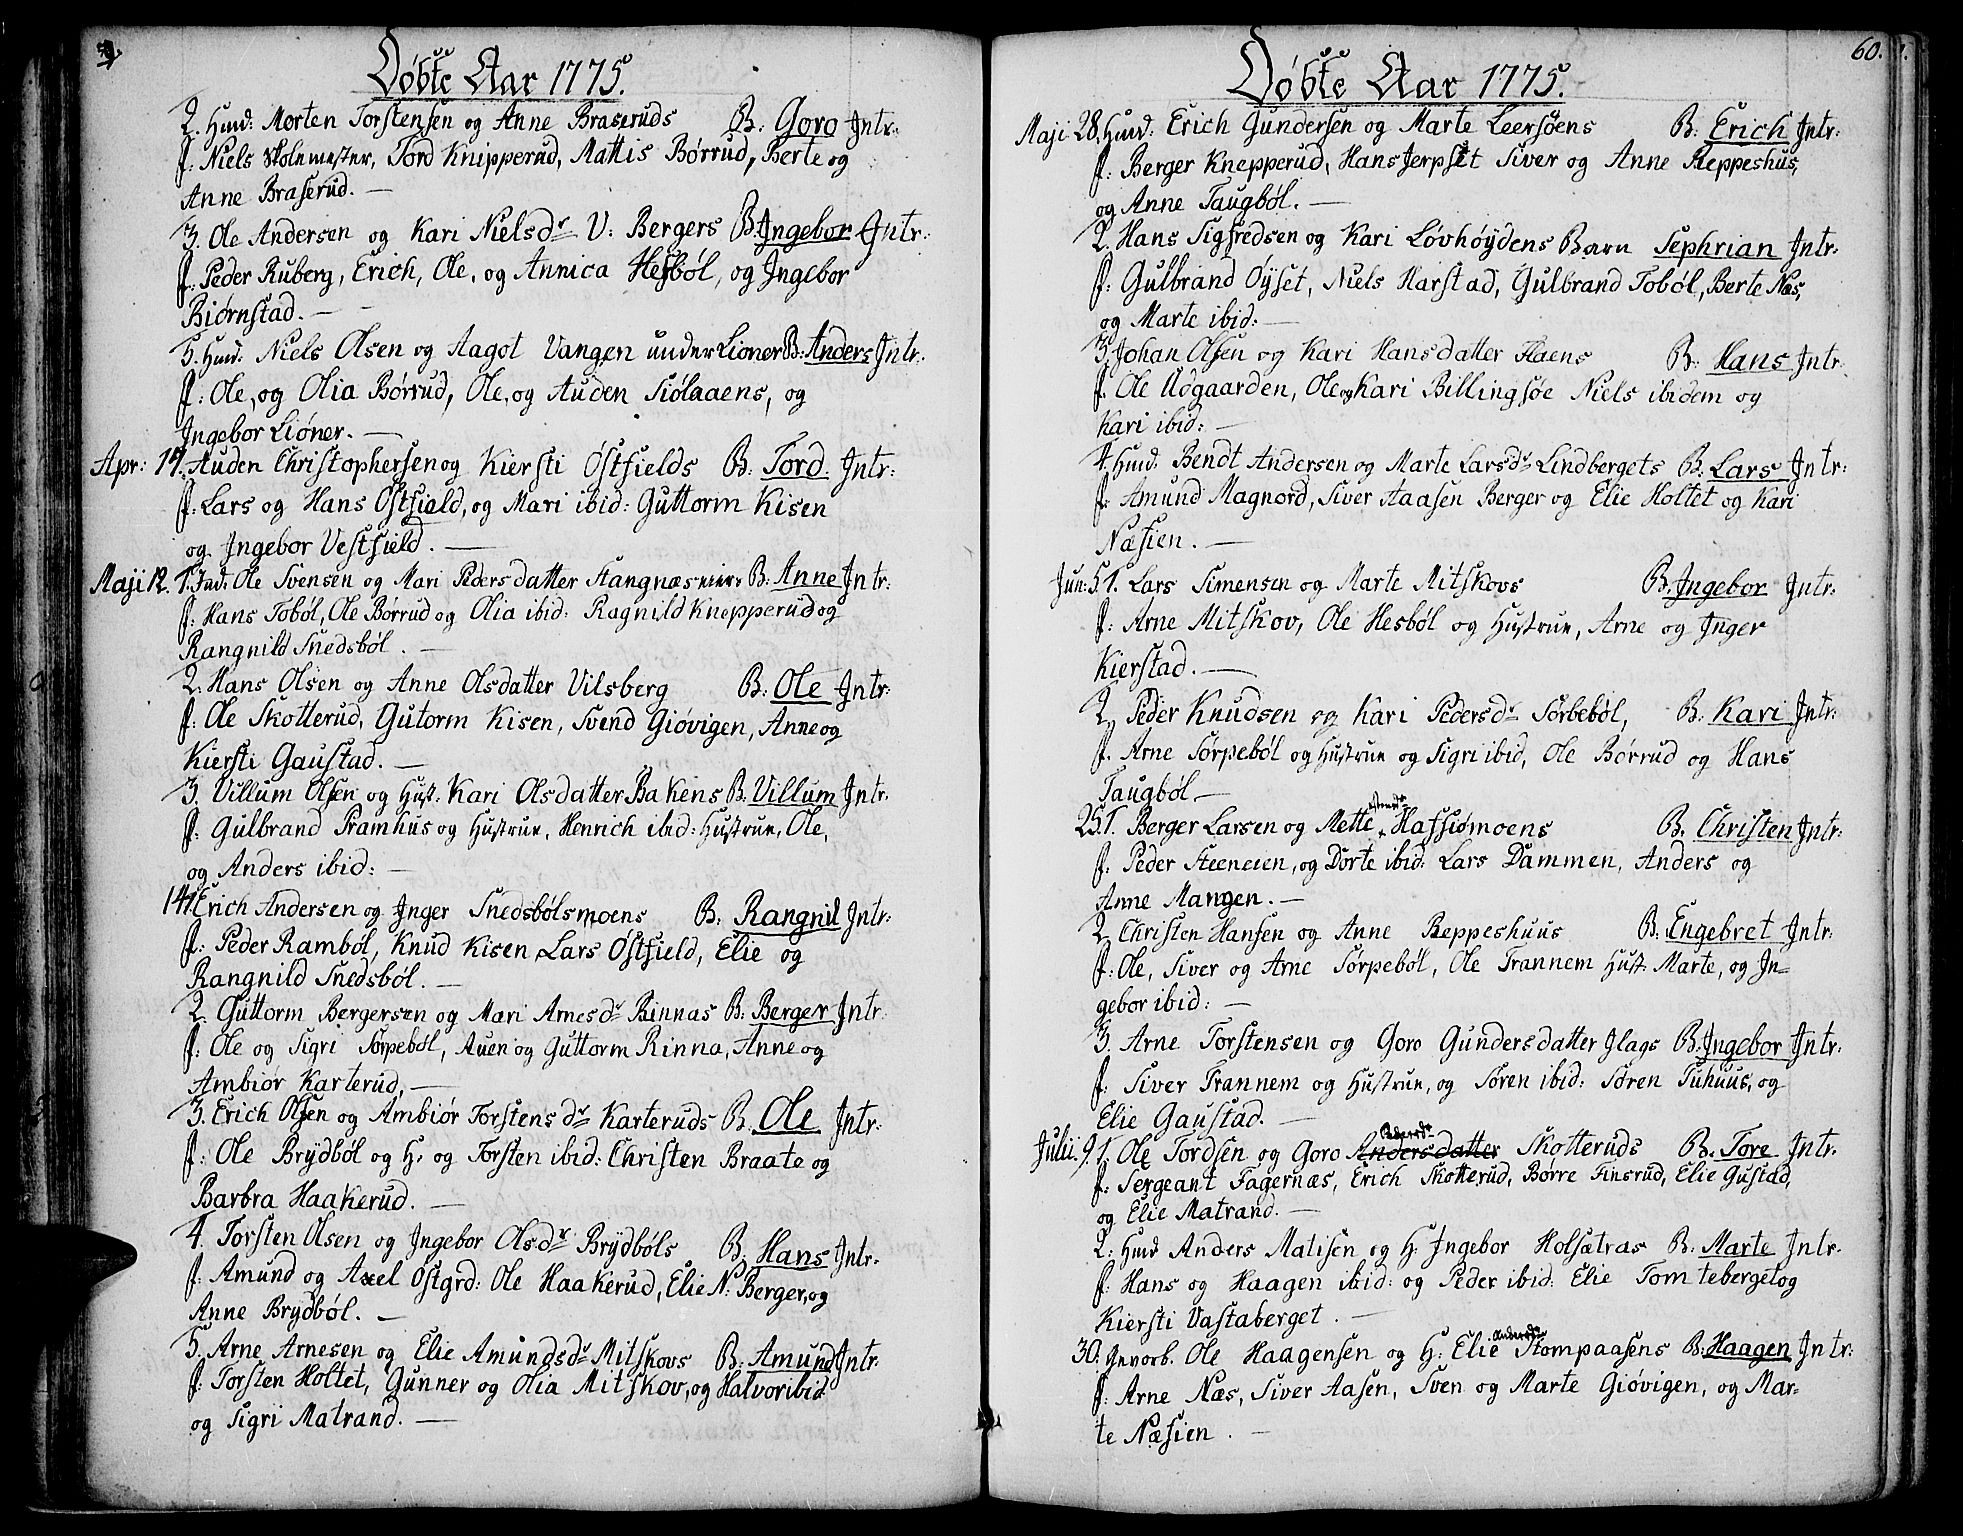 Døbte Aar 1775.
2. Huusm: Morten Torstensen og Anne Braseruds B: Goro Intr:
f: Niels Skolemester, Tord Knipperud, Mattis Børrud, Berte og
Anne Braserud.
3. Ole Andersen og Kari Nielsdr V: Bergers B: Ingebor Intr:
f: Peder Ruberg, Erich, Ole, og Annica Hesbøl, og Ingebor
Biørnstad.
5. Huusm: Niels Olsen og Aagot Vangen under Lioner B: Anders Intr:
f: Ole, og Olia Børrud, Ole, og Auden Siølaaens, og
Ingebor Liøner.
Apr: 17. Auden Christophersen og Kiersti Østfields B: Tord. Intr:
f: Lars og Hans Østfield, og Mari ibid: Guttorm Kisen
og Ingebor Vestfield.
Maji 12. 1. Ind: Ole Svensen og Mari Pedersdatter Stangnæs B: Anne Intr:
f: Hans Tobøl, Ole Børrud og Olia ibid: Ragnild Knepperud og
Rangnild Snedsbøl.
2. Hans Olsen og Anne Olsdatter Vilsberg B: Ole Intr:
f: Ole Skotterud, Gutorm Kisen, Svend Giøvigen, Anne og
Kiersti Gaustad.
3. Villum Olsen og Hust. Kari Olsdatter Bakens B. Villum Intr.
f: Gulbrand Framhus og Hustrue, Henrich ibid: Hustrue, Ole,
og Anders ibid:
14. 1. Erich Andersen og Inger Snedsbølsmoens B. Rangnil Intr:
f: Peder Rambøl, Knud Kisen, Lars Østfield, Elie og
Rangnild Snedsbøl.
2. Guttorm Bergersen og Mari Arnesdr Rinnas B. Berger Intr.
f: Ole og Sigri Sørpebøl, Auen og Guttorm Rinna, Anne og
Ambiør Karterud.
3. Erich Olsen og Ambiør Torstensdr Karteruds B. Ole Intr:
f: Ole Brydbøl og H. og Torsten ibid: Christen Braate og
Barbra Haakerud.
4. Torsten Olsen og Ingebor Olsdr Brydbøls B. Hans Intr:
f: Amund og Axel Østgrd: Ole Haakerud, Elie N: Berger, og
Anne Brydbøl.
5. Arne Arnesen og Elie Amundsdr Mitskovs B: Amund Intr.
f: Torsten Holtet, Gunner og Olia Mitskov, og Halvor ibid
og Sigri Matrand.
60.
Døbte Aar 1775.
Maji 28. Huusm: Erich Gundersen og Marte Leersøens B: Erich Intr:
f: Berger Knepperud, Hans Jerpset Siver og Anne Reppeshus,
og Anne Taugbøl.
2. Hans Sigfredsen og Kari Løvhøydens Barn Sephrian Intr:
f: Gulbrand Øyset, Niels Harstad, Gulbrand Tobøl, Berte Næs,
og Marte ibid:
3. Johan Olsen og Kari Hansdatter Haens B: Hans Intr.
f: Ole Udgaarden, Ole og Kari Billingsøe Niels ibidem og
Kari ibid:
4. Huusm. Bendt Andersen og Marte Larsdr Lindbergets B. Lars Intr:
f: Amund Magnord, Siver Aaasen Berger og Elie Holtet og Kari
Næsien.
Jun: 5. 1. Lars Simensen og Marte Mitskovs B. Ingebor Intr:
f: Arne Mitskov, Ole Hesbøl og Hustrue, Arne og Inger
Kierstad.
2. Peder Knudsen og Kari Pedersdr Sørbebøl, B: Kari Intr:
f. Arne Sørpebøl og Hustrue og Sigri ibid, Ole Børrud og Hans
Taugbøl
25. 1. Berger Larsen og Mette Hafsiømoens B. Christen Intr:
f: Peder Steeneien, og Dorte ibid: Lars Dammen, Anders og
Anne Mangen.
2. Christen Hansen og Anne Reppeshuus B. Engebret Intr:
f: Ole, Siver og Arne Sørpebøl, Ole Trannem Hust. Marte, og In-
gebor ibid:
3. Arne Torstensen og Goro Gundersdatter Ilags B. Ingebor Intr:
f. Siver Trannem og Hustrue, og Søren ibid: Søren Tuhuus, og
Elie Gaustad.
Pedersdr
Julii. 9. 1. Ole Tordsen og Goro Andersdatter Skotteruds B. Tore Intr.
f: Sergeant Fagernæs, Erich Skotterud, Børre Finsrud, Elie Gustad,
og Elie Matrand.
2: Huusm Anders Matisen og H. Ingebor Holsætras B: Marte Intr.
f: Hans og Haagen ibid: og Peder ibid. Elie Tomteberget og
Kiersti Vastaberget.
Andersdr
30. Invorb. Ole Haagensen og H: Elie Stompaasens B: Haagen Intr:
f: Arne Næs, Siver Aasen, Sven og Marte Giøvigen, og Mar-
te Næsien.